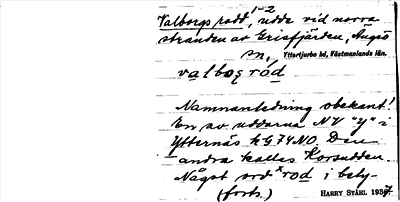 Valborgs rodd, 1-2 udde vid norra
stranden av Grisfjärden, Ängsö
sn, Yttertjurbo hd, Västmanlands län.
valboș ród
Namnanledning obekant!
En av uddarna NV "y" i
Ytternäs kG74NO. Den
andra kallas Korsudden.
Något ord ˣrod i bety-
(forts.) HARRY STÅHL 1937.